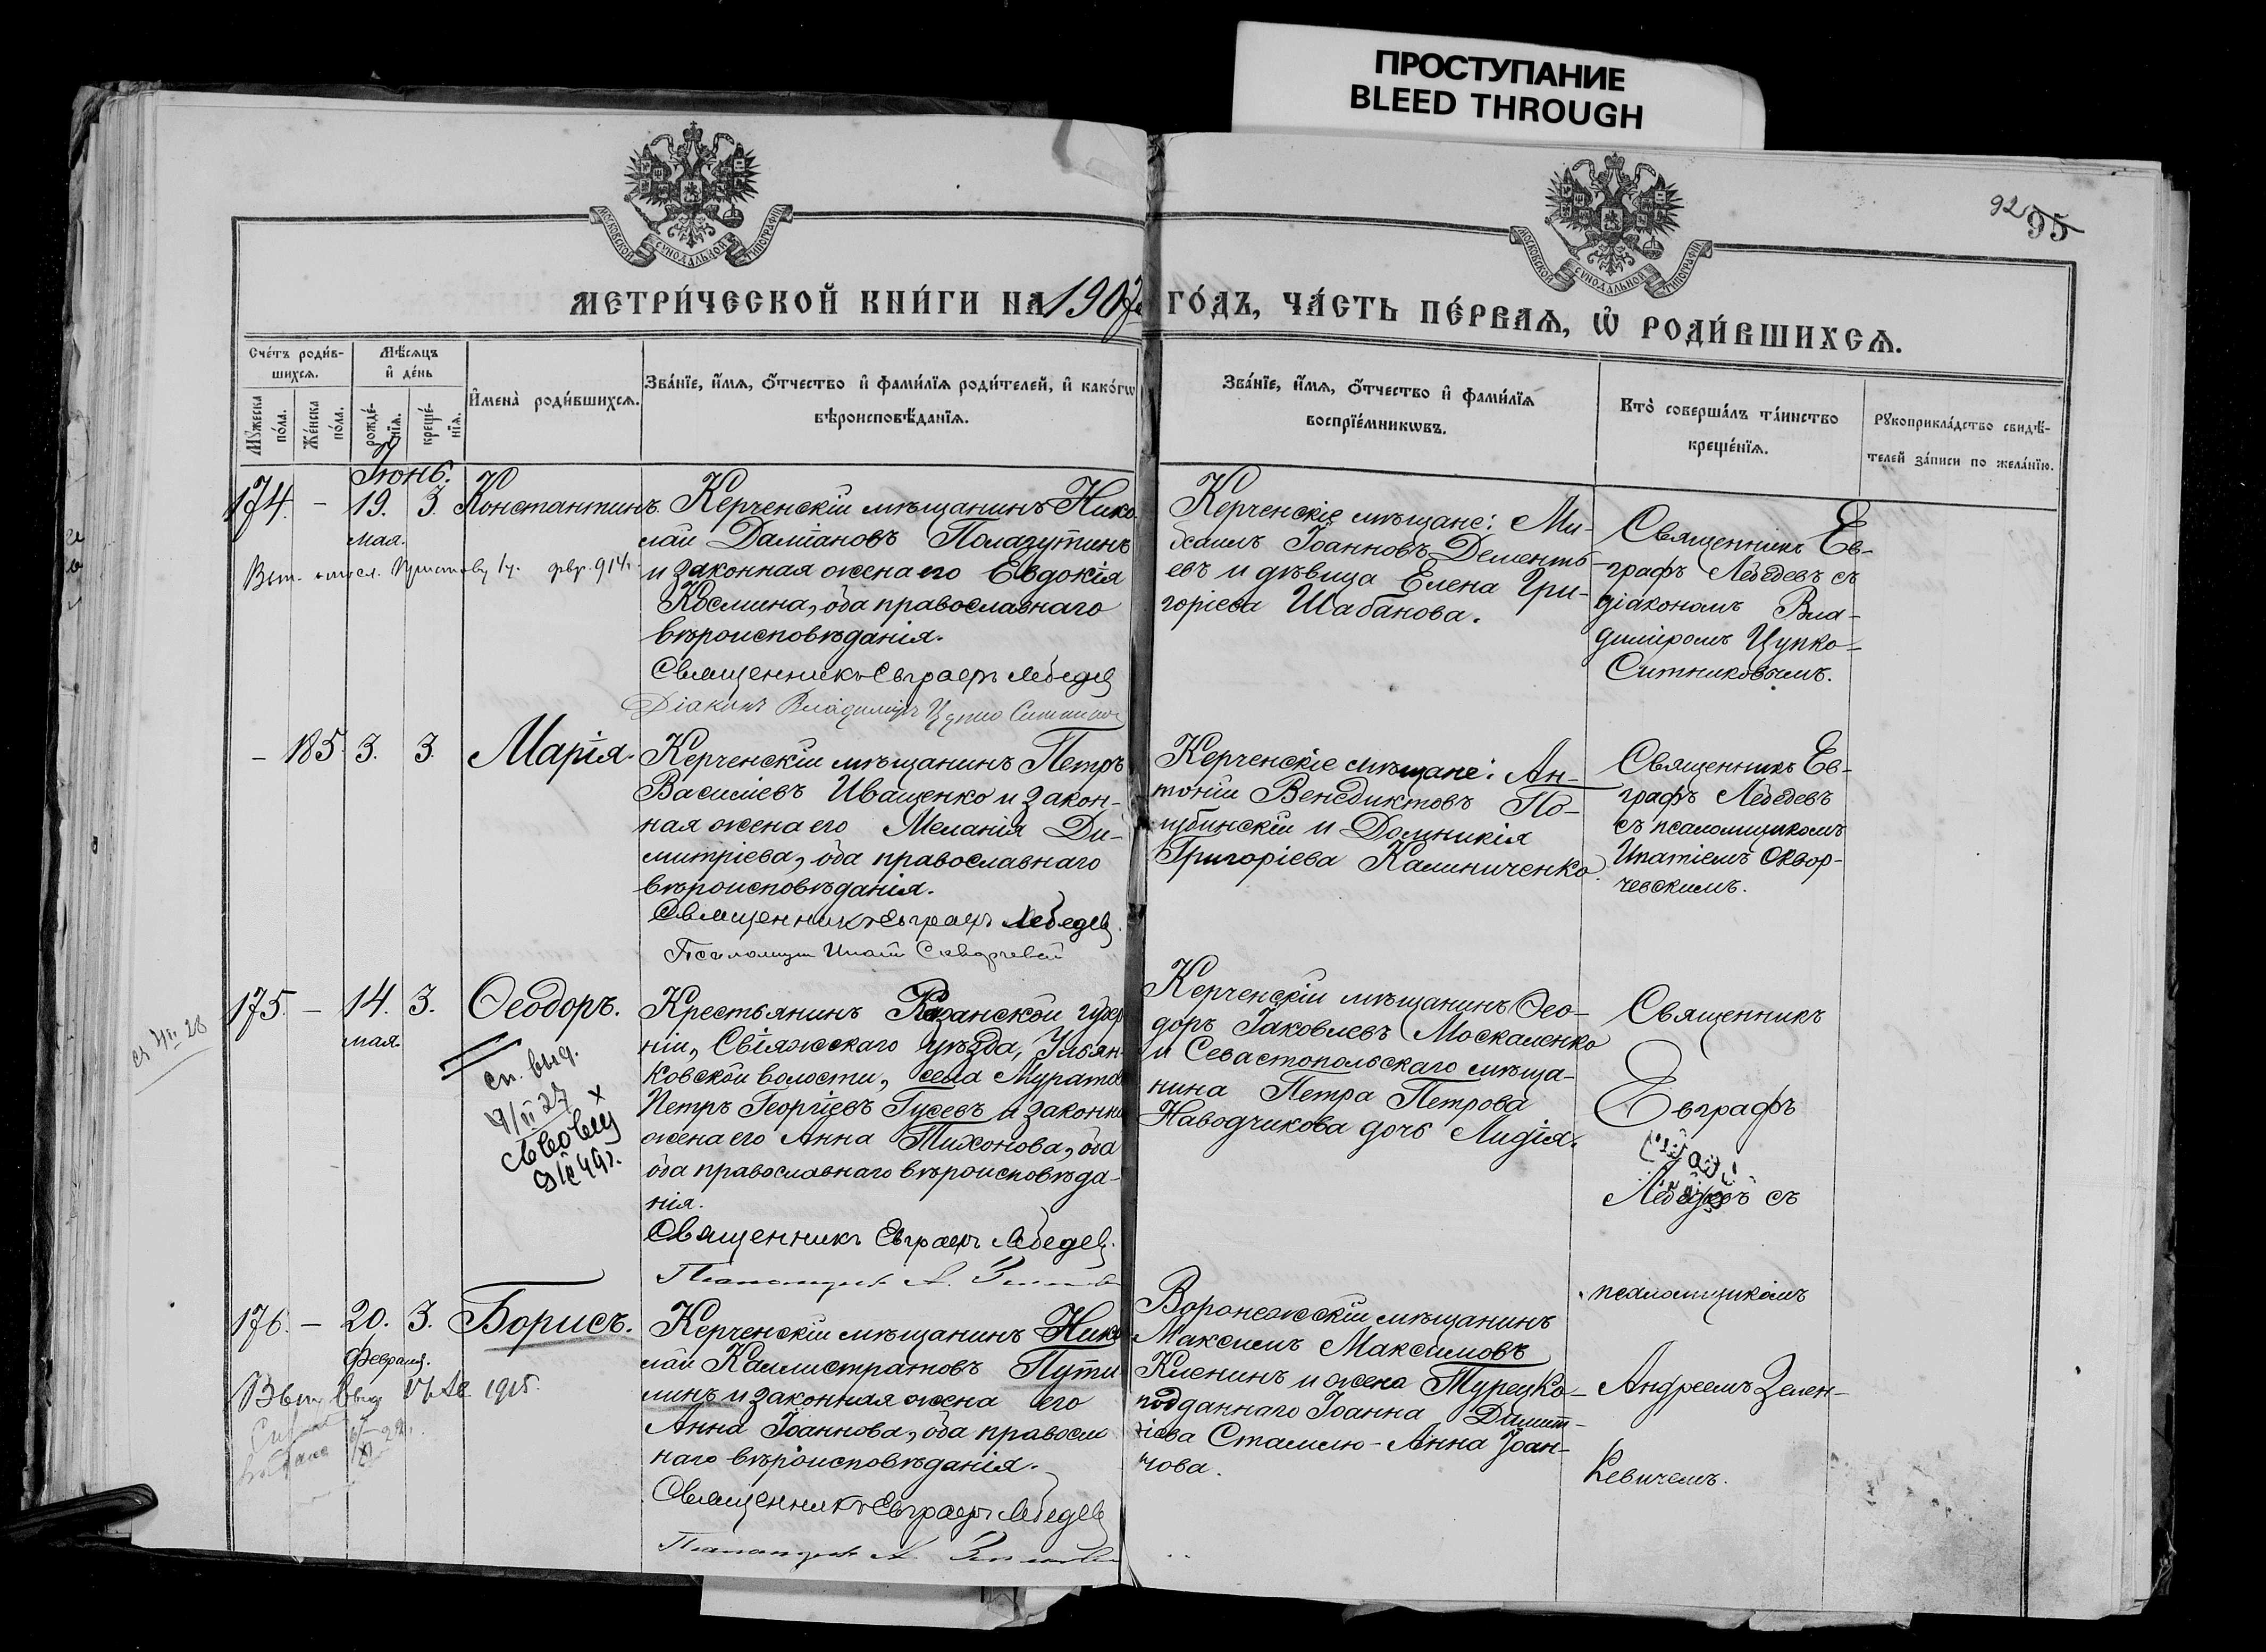 ПРОСТУПАНИЕ
BLEED THROUGH
МОСКОВСКОЙ СѴНОДАЛЬНОЙ ТИПОГРАФІИ
МОСКОВСКОЙ СѴНОДАЛЬНОЙ ТИПОГРАФІИ
92 95
МЕТРИ́ЧЕСКОЙ КНИ́ГИ НА 1907 ГО́ДЪ, ЧА́СТЬ ПЕ́РВАѦ, Ѡ҆ РОДИ́ВШИХСѦ.
Сче́тъ роди́в-
шихсѧ.
Мѣ́сѧцъ
и҆ де́нь
Мꙋ́жеска
по́ла.
Же́нска
по́ла.
рожде́-
нїѧ.
креще́-
нїѧ.
И҆мена̀ роди́вшихсѧ.
Зва́нїе, и҆́мѧ, ѻ҆́тчество и҆ фами́лїѧ роди́телей, и҆ како́гѡ
вѣроисповѣ́данїѧ.
Зва́нїе, и҆́мѧ, ѻ҆́тчество и҆ фами́лїѧ
воспрїе́мникѡвъ.
Кто̀ соверша́лъ та́инство
креще́нїѧ.
Рꙋкоприкла́дство свидѣ́-
телей за́писи по жела́нїю.
Іюнь.
174. - 19. 3. Константинъ.
мая.
Керченскій мѣщанинъ Нико-
лай Даміановъ Полазутинъ
и законная жена его Евдокія
Космина, оба православнаго
вѣроисповѣданія.
Священникъ Евграфъ Лебедев
Діаконъ Владиміръ Цупко
Керченскіе мѣщане: Ми-
хаилъ Іоанновъ Дементь-
евъ и дѣвица Елена Гри-
горіева Шабанова.
Священникъ Ев-
графъ Лебедевъ съ
діакономъ Вла-
диміромъ Цупко-
Ситниковымъ.
- 185 3. 3. Марія.
Керченскій мѣщанинъ Петръ
Василіевъ Иващенко и закон-
ная жена его Меланія Ди-
митріева, оба православнаго
вѣроисповѣданія.
Священникъ Евграфъ Лебедев.
Псаломщик Ипатій
Керченскіе мѣщане: Ан-
тоній Венедиктовъ По-
и Домникія
Григоріева Калиниченко.
Священникъ Ев-
графъ Лебедевъ
съ псаломщикомъ
Ипатіемъ Сквор-
чевскимъ.
175. - 14. 3. Ѳеодоръ.
мая.
сп. выд.
Крестьянинъ Казанской губер
ніи, Свіяжскаго уѣзда, Ульян-
ковской волости, села
Петръ Георгіевъ Гусевъ и законная
жена его Анна Тихонова, оба
оба православнаго вѣроисповѣда-
нія.
Священникъ Евграфъ Лебедев.
Псаломщикъ А.
Керченскій мѣщанинъ Ѳео-
доръ Іаковлевъ Москаленко
и Севастопольскаго мѣща-
нина Петра Петрова
Наводчикова дочь Лидія.
Священникъ
Евграфъ
Лебедевъ съ
псаломщикомъ
Андреемъ Зелен-
кевичемъ.
176. - 20. 3. Борисъ.
февраля.
1915.
Керченскій мѣщанинъ Нико
лай Каллистратовъ Пути
линъ и законная жена его
Анна Іоаннова, оба правосла
наго вѣроисповѣданія.
Священникъ Евграфъ Лебедев
Псаломщикъ А.
Воронежскій мѣщанинъ
Максимъ Максимовъ
Кленинъ и жена Турецко-
подданнаго Іоанна Димит-
ріева Анна Іоан-
нова.